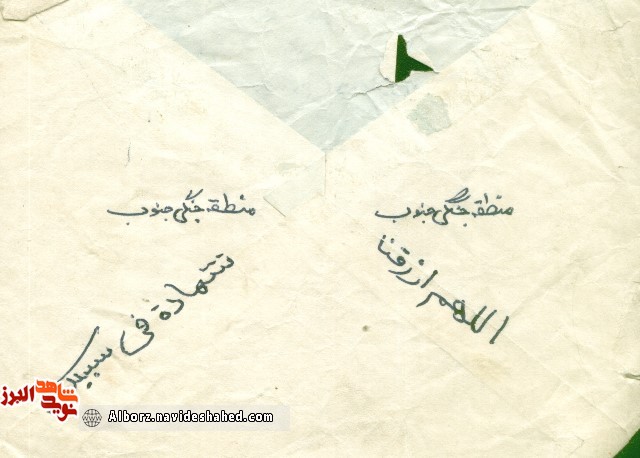 منطقه جنگی جنوب
منطقه جنگی جنوب
اللهم ارزقنا
شهادة فی سبیلک
نوید شاهد البرز
Alborz.navideshahed.com